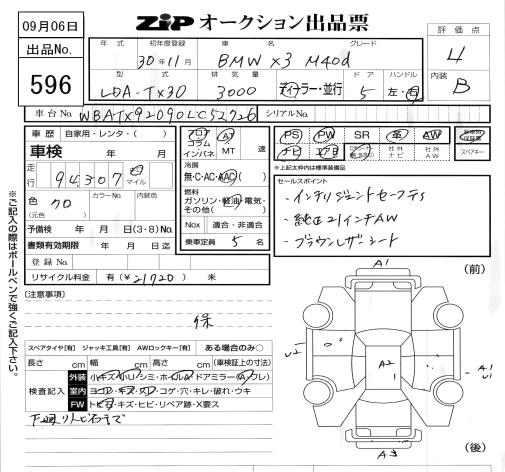 09月06日
ZIP オークション出品票
出品No.
596
評価点
4
内装
B
年式 初年度登録 車名 グレード
30年11月 BMW X3 M40d
型式 排気量 ドア ハンドル
LDA-TX30 3000 ディーラー・並行 5 左・右
車台No. WBATX92090LC52726 シリアルNo.
車歴 自家用・レンタ・( )
車検 年 月
走行 94,307 マイル
色 クロ カラーNo. 内装色
(元色)
予備検 年 月 日(3・8)No.
書類有効期限 年 月 日迄
登録No.
リサイクル料金 有(¥21720) 未
フロア AT
コラム
インパネ MT 速
冷房
無・C・AC・AAC( )
燃料
ガソリン・軽油・電気・
その他( )
Nox 適合・非適合
乗車定員 5 名
PS PW SR 革 AW
ナビ エアB 社外ナビ 社外AW スペアキー
※上記太枠内は標準装備品
セールスポイント
・インテリジェントセーフティ
・純正21インチAW
・ブラウンレザーシート
※ご記入の際はボールペンで強くご記入下さい。
[注意事項]
保
スペアタイヤ[有] ジャッキ工具[有] AWロックキー[有] ある場合のみ○
長さ cm 幅 cm 高さ cm (車検証上の寸法)
検査記入
外装 小キズ・小凹・シミ・ホイル・ドアミラー(A・フレ)
室内 ヨゴレ・キズ・スレ・コゲ・穴・キレ・破れ・ウキ
FW トビ石・キズ・ヒビ・リペア跡・X要ス
(前)
A1
U2
A2
1
A1
U1
A3
(後)